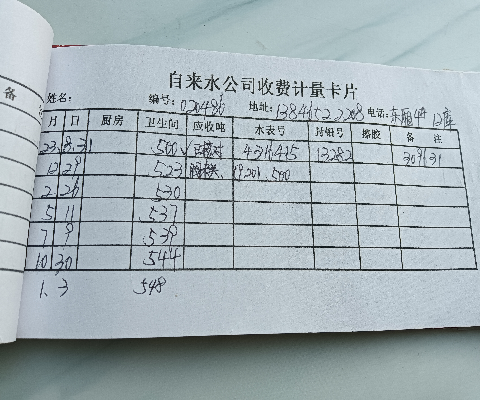 备
自来水公司收费计量卡片
姓名: 编号: 020486 地址: 13846522208 电话:
月 日 厨房 卫生间 应收吨 水表号 持钢号 擦胶 备 注
23.8.31 500 √ 431415 13282 309131
12 29 523 19.201.500
2 26 530
5 11 537
7 9 539
10 30 544
1. 3 548